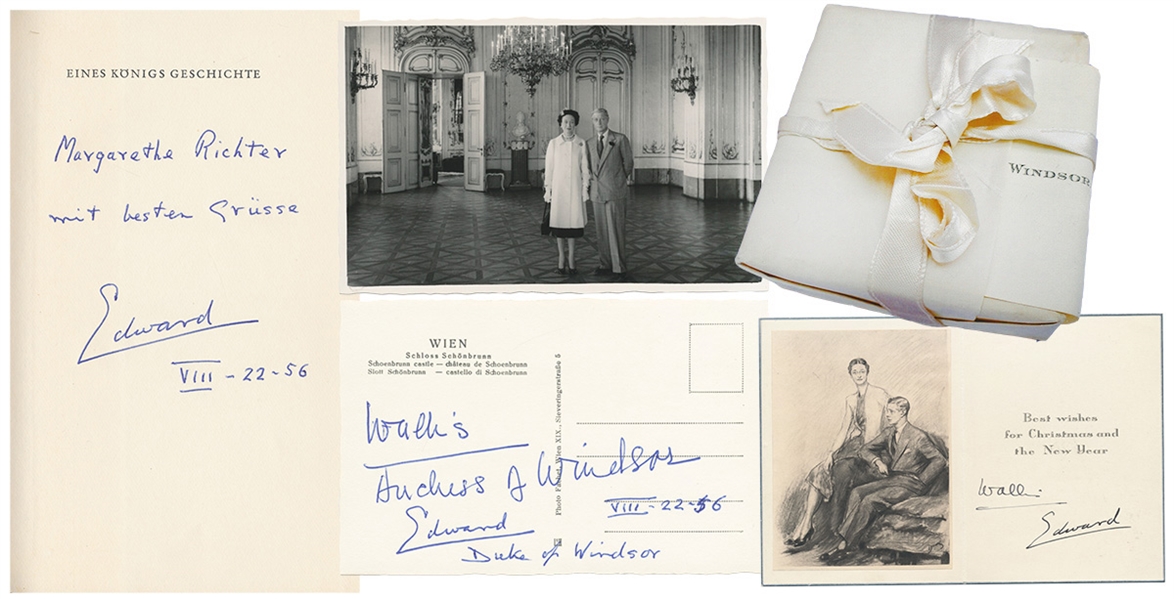 EINES KÖNIGS GESCHICHTE
Margarethe Richter
mit besten Grüsse
Edward
VIII - 22 - 56
WIEN
Schloss Schönbrunn
Schoenbrunn castle — château de Schoenbrunn
Slott Schönbrunn — castello di Schoenbrunn
Wallis
Duchess of Windsor
Edward
Duke of Windsor
VIII - 22 - 56
WINDSOR
Best wishes
for Christmas and
the New Year
Wallis
Edward